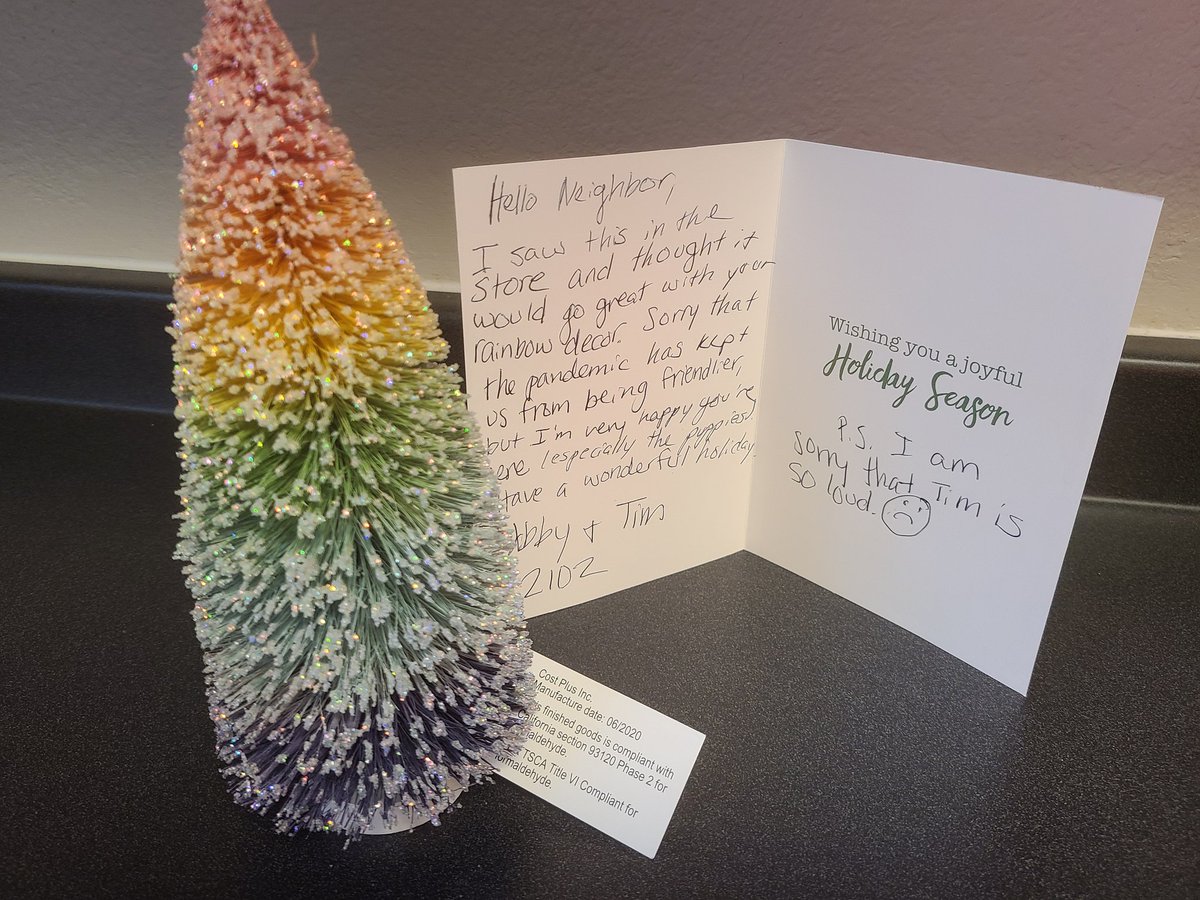 Hello Neighbor,
I saw this in the
store and thought it
would go great with your
rainbow decor. Sorry that
the pandemic has kept
us from being friendlier,
but I'm very happy you're
(especially the puppies).
have a wonderful holiday.
+ Tim
2102
Wishing you a joyful
Holiday Season
P.S. I am
sorry that Tim is
so loud.
Cost Plus Inc.
Manufacture date: 06/2020
finished goods is compliant with
California section 93120 Phase 2 for
TSCA Title VI Compliant for